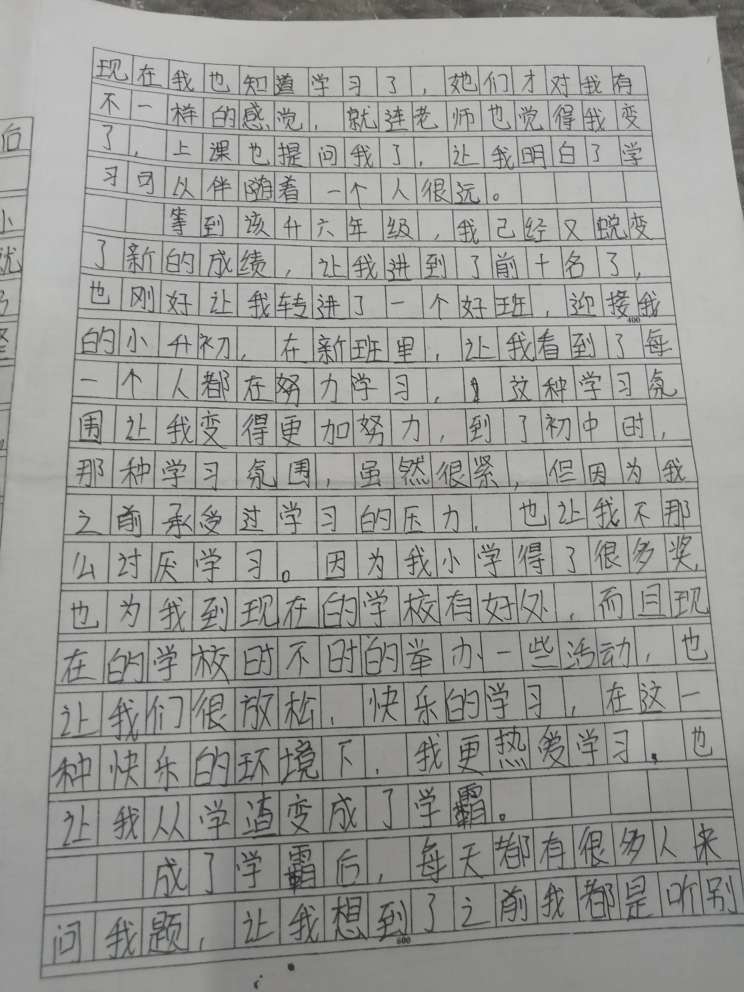 现在我也知道学习了，她们才对我有
不一样的感觉，就连老师也觉得我变
了，上课也提问我了，让我明白了学
习可以伴随着一个人很远。
等到该升六年级，我已经又蜕变
了新的成绩，让我进到了前十名了，
也刚好让我转进了一个好班，迎接我
400
的小升初，在新班里，让我看到了每
一个人都在努力学习，这种学习氛
围让我变得更加努力，到了初中时，
那种学习氛围，虽然很紧，但因为我
之前承受过学习的压力，也让我不那
么讨厌学习。因为我小学得了很多奖，
也为我到现在的学校有好处，而且现
在的学校时不时的举办一些活动，也
让我们很放松，快乐的学习，在这一
种快乐的环境下，我更热爱学习，也
让我从学渣变成了学霸。
成了学霸后，每天都有很多人来
问我题，让我想到了之前我都是听别
600
后
小
就